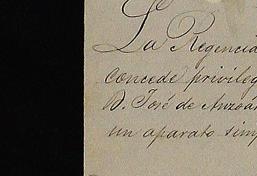 La Regencia
concede privileg
D. José de Anzoá
un aparato simp